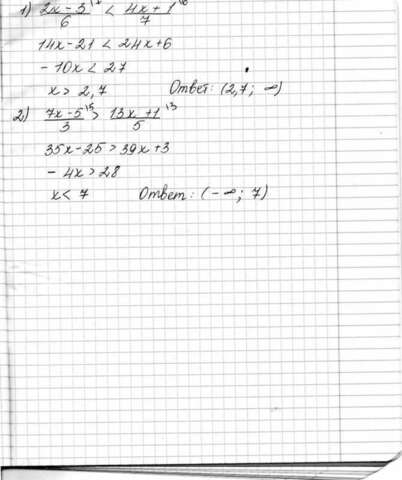 1) (2x-3)/6 ^(·7) < (4x+1)/7 ^(·6)
14x-21 < 24x+6
-10x < 27
x > 2,7 Ответ: (2,7; ∞)
2) (7x-5)/3 ^(15) > (13x+1)/5 ^(13)
35x-25 > 39x+3
-4x > 28
x < 7 Ответ: (-∞; 7)